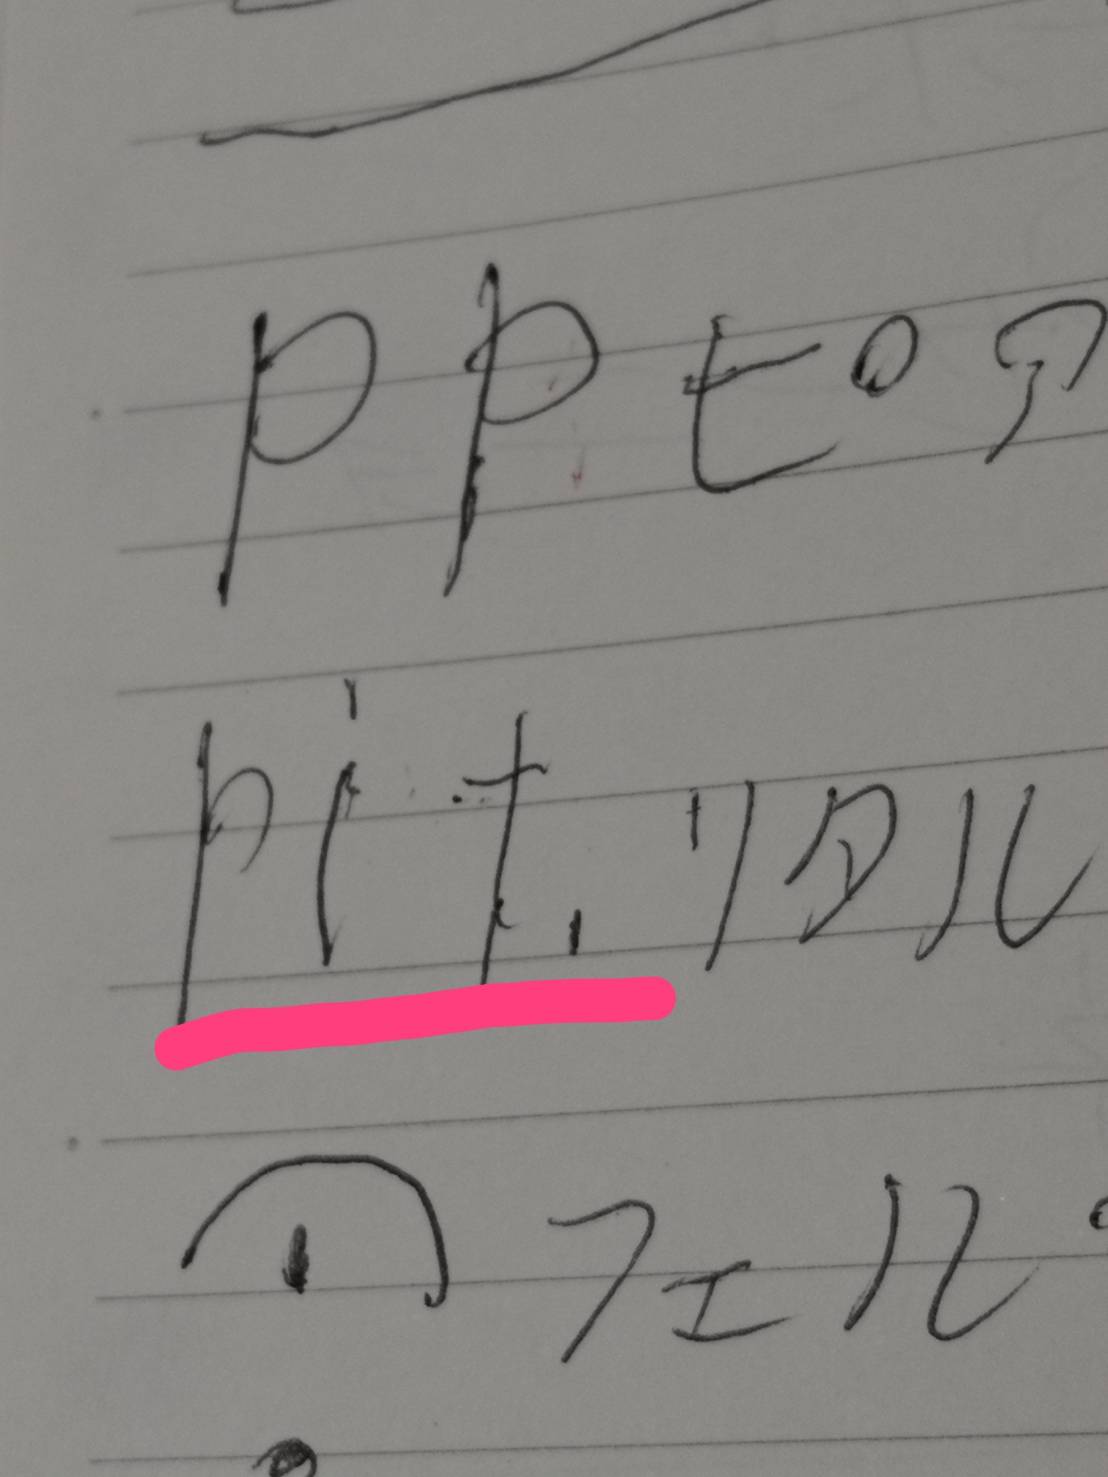 pp ピア
pit. リタル
フェル